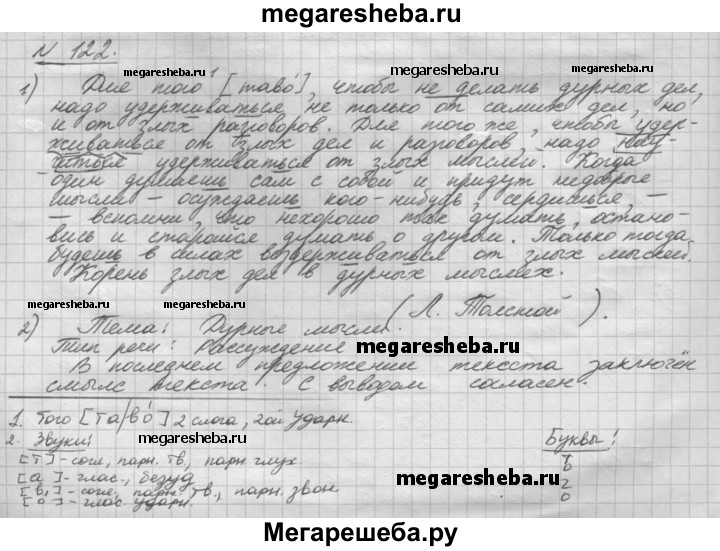 megaresheba.ru
N 122.
megaresheba.ru megaresheba.ru
1) Для того [таво́], чтобы не делать дурных дел,
надо удерживаться не только от самих дел, но
и от злых разговоров. Для того же, чтобы удер-
живаться от злых дел и разговоров, надо нау-
читься удерживаться от злых мыслей. Когда
один думаешь сам с собой и придут недобрые
мысли – осуждаешь кого-нибудь, сердишься, –
– вспомни, что нехорошо так думать, остано-
вись и старайся думать о другом. Только тогда
будешь в силах воздерживаться от злых мыслей.
Корень злых дел в дурных мыслях.
megaresheba.ru megaresheba.ru megaresheba.ru
(Л. Толстой).
2) Тема: Дурные мысли.
Тип речи: Рассуждение
megaresheba.ru
В последнем предложении текста заключён
смысл текста. С выводом согласен.
1. Того [та/во́] 2 слога, 2ой ударн.
2. Звуки: Буквы!
megaresheba.ru
[т]-согл, парн. тв, парн глух.
[а]-глас., безуд
[в]-согл, парн. тв., парн. звон.
[о́]-глас ударн.
г
о
megaresheba.ru
Мегарешеба.ру